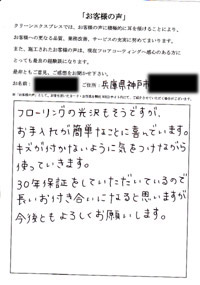 「お客様の声」
クリーンエクスプレスでは、お客様の声に積極的に耳を傾けることにより、
お客様への更なる品質、業務改善、サービスの充実に努めてまいります。
また、施工されたお客様の声は、現在フロアコーティングへ感心のある方に
とっても最高の経験談になります。
是非ともご意見、ご感想をお聞かせ下さい。
お名前
ご住所：兵庫県神戸市
フローリングの光沢もそうですが、
お手入れが簡単なことに喜んでいます。
キズが付かないように気をつけながら
使っていきます。
30年保証をしていただいているので
長いお付き合いになると思いますが
今後ともよろしくお願いします。